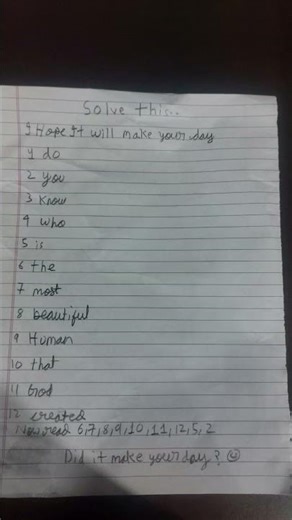 Solve this..
I Hope It will make your day
1 do
2 you
3 Know
4 who
5 is
6 the
7 most
8 beautiful
9 Human
10 that
11 God
12 created
read 6,7,8,9,10,11,12,5,2
Did it make your day? ☺